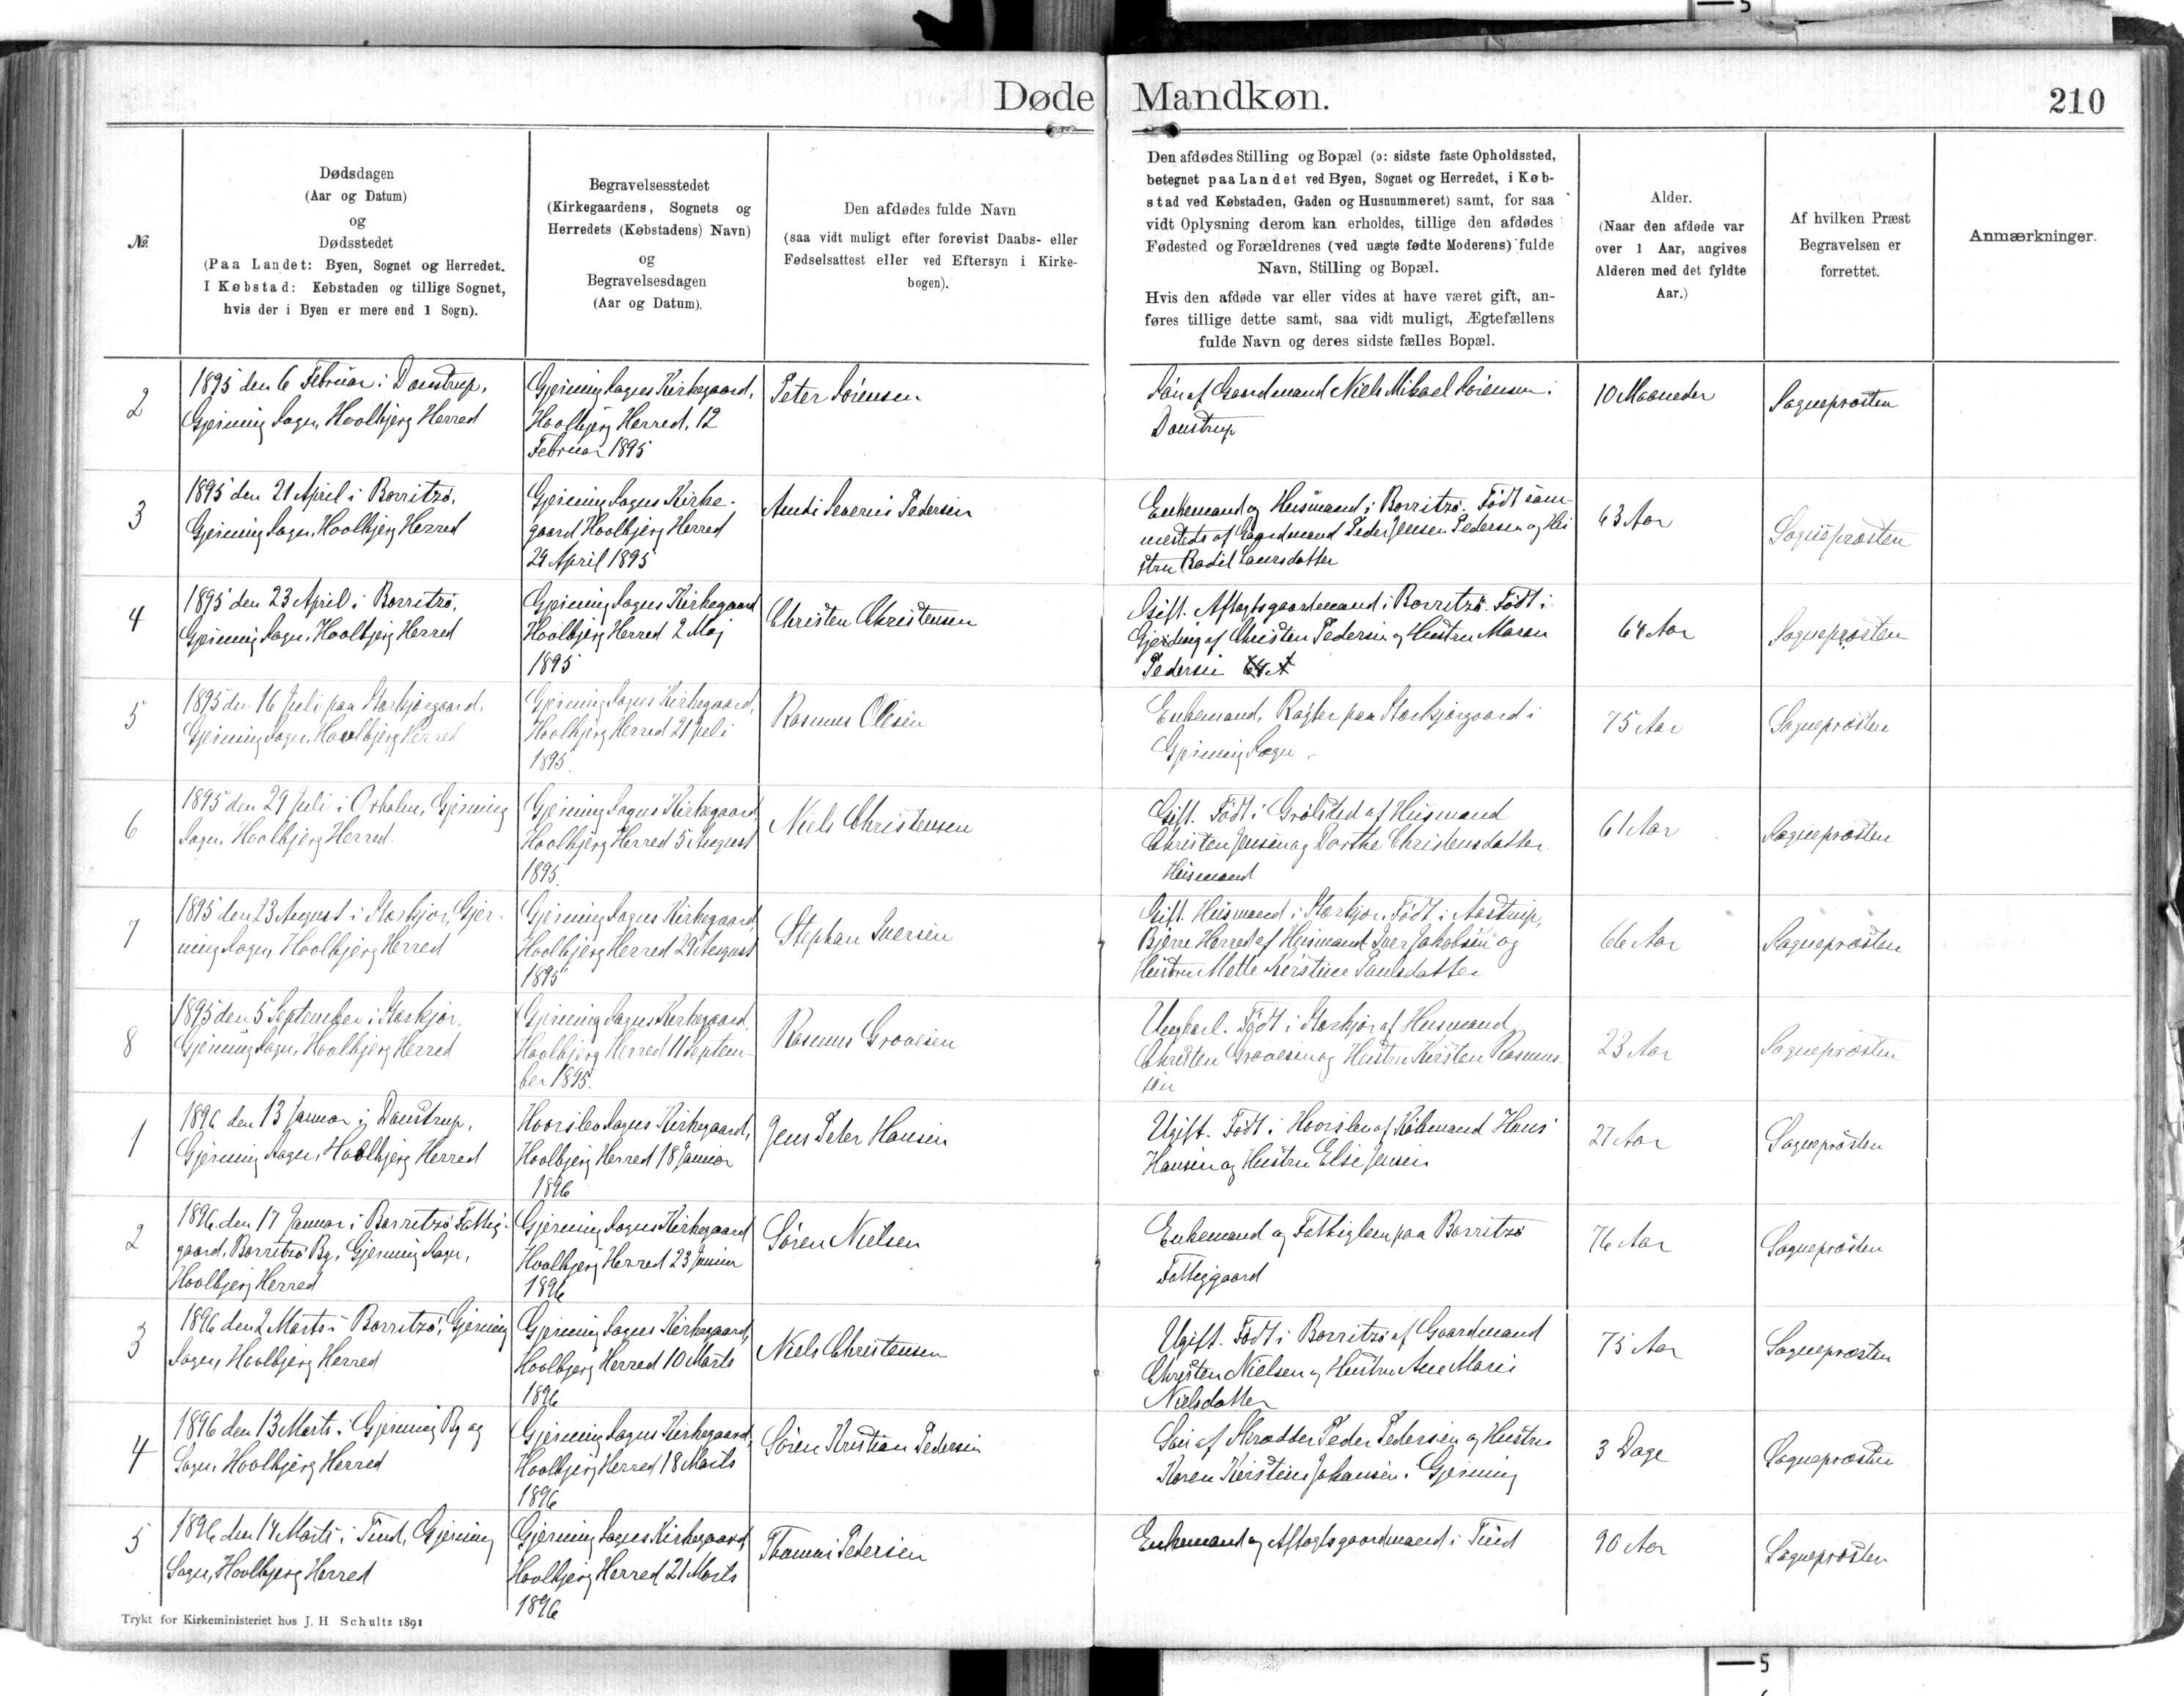 Døde Mandkøn.
210
№
Dødsdagen
(Aar og Datum)
og
Dødsstedet
(Paa Landet: Byen, Sognet og Herredet.
I Købstad: Købstaden og tillige Sognet,
hvis der i Byen er mere end 1 Sogn).
Begravelsesstedet
(Kirkegaardens, Sognets og
Herredets (Købstadens) Navn)
og
Begravelsesdagen
(Aar og Datum).
Den afdødes fulde Navn
(saa vidt muligt efter forevist Daabs- eller
Fødselsattest eller ved Eftersyn i Kirke-
bogen).
Den afdødes Stilling og Bopæl (ɔ: sidste faste Opholdssted,
betegnet paa Landet ved Byen, Sognet og Herredet, i Køb-
stad ved Købstaden, Gaden og Husnummeret) samt, for saa
vidt Oplysning derom kan erholdes, tillige den afdødes
Fødested og Forældrenes (ved uægte fødte Moderens) fulde
Navn, Stilling og Bopæl.
Hvis den afdøde var eller vides at have været gift, an-
føres tillige dette samt, saa vidt muligt, Ægtefællens
fulde Navn og deres sidste fælles Bopæl.
Alder.
(Naar den afdøde var
over 1 Aar, angives
Alderen med det fyldte
Aar.)
Af hvilken Præst
Begravelsen er
forrettet.
Anmærkninger.
2
1895 den 6 Februar i Danstrup,
Gjerning Sogn, Houlbjerg Herred
Gjerning Sogns Kirkegaard,
Houlbjerg Herred, 12
Februar 1895
Peter Sørensen
Søn af Gaardmand Niels Mikael Sørensen i
Danstrup
10 Maaneder
Sognepræsten
3
1895 den 21 April i Borritzø,
Gjerning Sogn, Houlbjerg Herred
Gjerning Sogns Kirke-
gaard Houlbjerg Herred
29 April 1895
Severin Pedersen
Enkemand og Husmand i Borritzø. Født sam-
mesteds af Gaardmand Peder Jensen Pedersen og Hu
stru Bodil Laursdatter
63 Aar
Sognepræsten
4
1895 den 23 April i Borritzø,
Gjerning Sogn, Houlbjerg Herred
Gjerning Sogns Kirkegaard
Houlbjerg Herred 2 Maj
1895
Christen Christensen
Gift. Aftægtsgaardmand i Borritzø. Født i
Gjerning af Christen Pedersen og Hustru Maren
Pedersen
64 Aar
Sognepræsten
5
1895 den 16 Juli paa Storkjørgaard,
Gjerning Sogn, Houlbjerg Herred
Gjerning Sogns Kirkegaard,
Houlbjerg Herred 21 Juli
1895.
Rasmus Olesen
Enkemand, Røgter paa Storkjørgaard i
Gjerning Sogn
75 Aar
Sognepræsten
6
1895 den 29 Juli i Orholm, Gjerning
Sogn, Houlbjerg Herred
Gjerning Sogns Kirkegaard,
Houlbjerg Herred 5 August
1895.
Niels Christensen
Gift. Født i Grølsted af Husmand
Christen Jensen og Dorthe Christensdatter
Husmand
61 Aar
Sognepræsten
7
1895 den 23 August i Storkjør, Gjer-
ning Sogn, Houlbjerg Herred
Gjerning Sogns Kirkegaard,
Houlbjerg Herred 29 August
1895
Stephan Iversen
Gift. Husmand i Storkjør. Født i Aastrup,
Bjerre Herred af Husmand Iver Jakobsen og
Hustru Mette Kirstine Poulsdatter
66 Aar
Sognepræsten
8
1895 den 5 September i Storkjør,
Gjerning Sogn, Houlbjerg Herred
Gjerning Sogns Kirkegaard,
Houlbjerg Herred 11 Septem-
ber 1895.
Rasmus Grovesen
Ungkarl. Født i Storkjør af Husmand
Christen Grovesen og Hustru Kirsten Rasmus-
sen
23 Aar
Sognepræsten
1
1896 den 13 Januar i Danstrup,
Gjerning Sogn, Houlbjerg Herred
Hvorslev Sogns Kirkegaard,
Houlbjerg Herred 18 Januar
1896
Jens Peter Hansen
Ugift. Født i Hvorslev af Købmand Hans
Hansen og Hustru Else Jensen
27 Aar
Sognepræsten
2
1896 den 17 Januar i Borritzø Fattig-
gaard, Borritzø By, Gjerning Sogn,
Houlbjerg Herred
Gjerning Sogns Kirkegaard
Houlbjerg Herred 23 Januar
1896
Søren Nielsen
Enkemand og Fattiglem paa Borritzø
Fattiggaard
76 Aar
Sognepræsten
3
1896 den 2 Marts i Borritzø, Gjerning
Sogn, Houlbjerg Herred
Gjerning Sogns Kirkegaard,
Houlbjerg Herred 10 Marts
1896
Niels Christensen
Ugift. Født i Borritzø af Gaardmand
Christen Nielsen og Hustru Ane Marie
Nielsdatter
75 Aar
Sognepræsten
4
1896 den 13 Marts i Gjerning By og
Sogn, Houlbjerg Herred
Gjerning Sogns Kirkegaard,
Houlbjerg Herred 18 Marts
1896
Søren Kristian Pedersen
Søn af Skrædder Peder Pedersen og Hustru
Karen Kirstine Johansen i Gjerning
3 Dage
Sognepræsten
5
1896 den 14 Marts i Tind, Gjerning
Sogn, Houlbjerg Herred
Gjerning Sogns Kirkegaard
Houlbjerg Herred 21 Marts
1896
Thomas Pedersen
Enkemand og Aftægtsgaardmand i Tind
90 Aar
Sognepræsten
Trykt for Kirkeministeriet hos J. H Schultz 1891
5
5